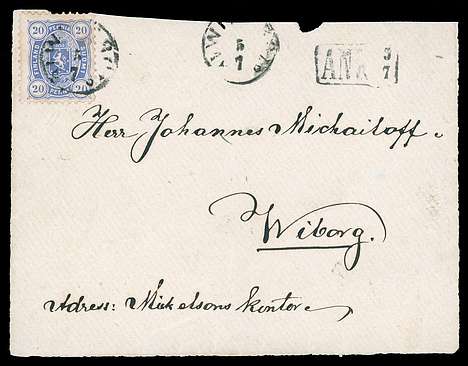 20 20
FINLAND
20 20
5
7
ANK 5
7
Herr Johannes Michailoff.
Wiborg.
Adress: Mickelsons kontor